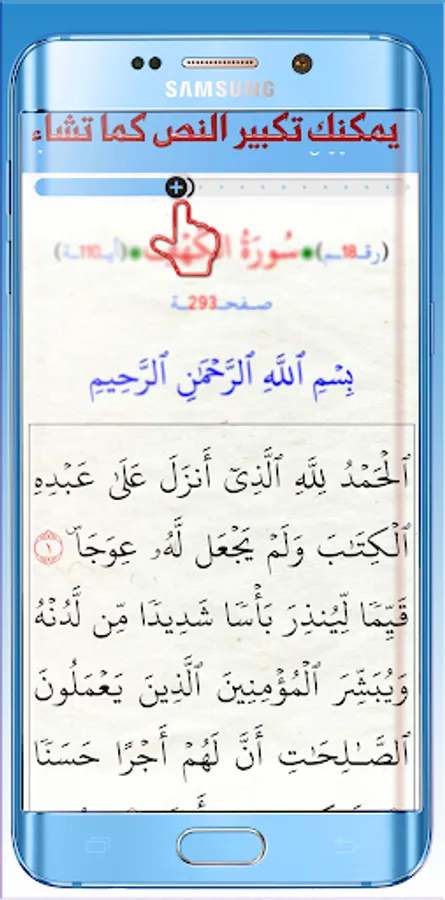 SAMSUNG
يمكنك تكبير النص كما تشاء
(رقـ18ـم) سُورَةُ الكَهْف (آيـ110ـة)
صـفحـ293ـة
بِسْمِ ٱللَّهِ ٱلرَّحْمَٰنِ ٱلرَّحِيمِ
ٱلْحَمْدُ لِلَّهِ ٱلَّذِىٓ أَنزَلَ عَلَىٰ عَبْدِهِ
ٱلْكِتَٰبَ وَلَمْ يَجْعَل لَّهُۥ عِوَجَاۜ ١
قَيِّمًا لِّيُنذِرَ بَأْسًا شَدِيدًا مِّن لَّدُنْهُ
وَيُبَشِّرَ ٱلْمُؤْمِنِينَ ٱلَّذِينَ يَعْمَلُونَ
ٱلصَّـٰلِحَـٰتِ أَنَّ لَهُمْ أَجْرًا حَسَنًا